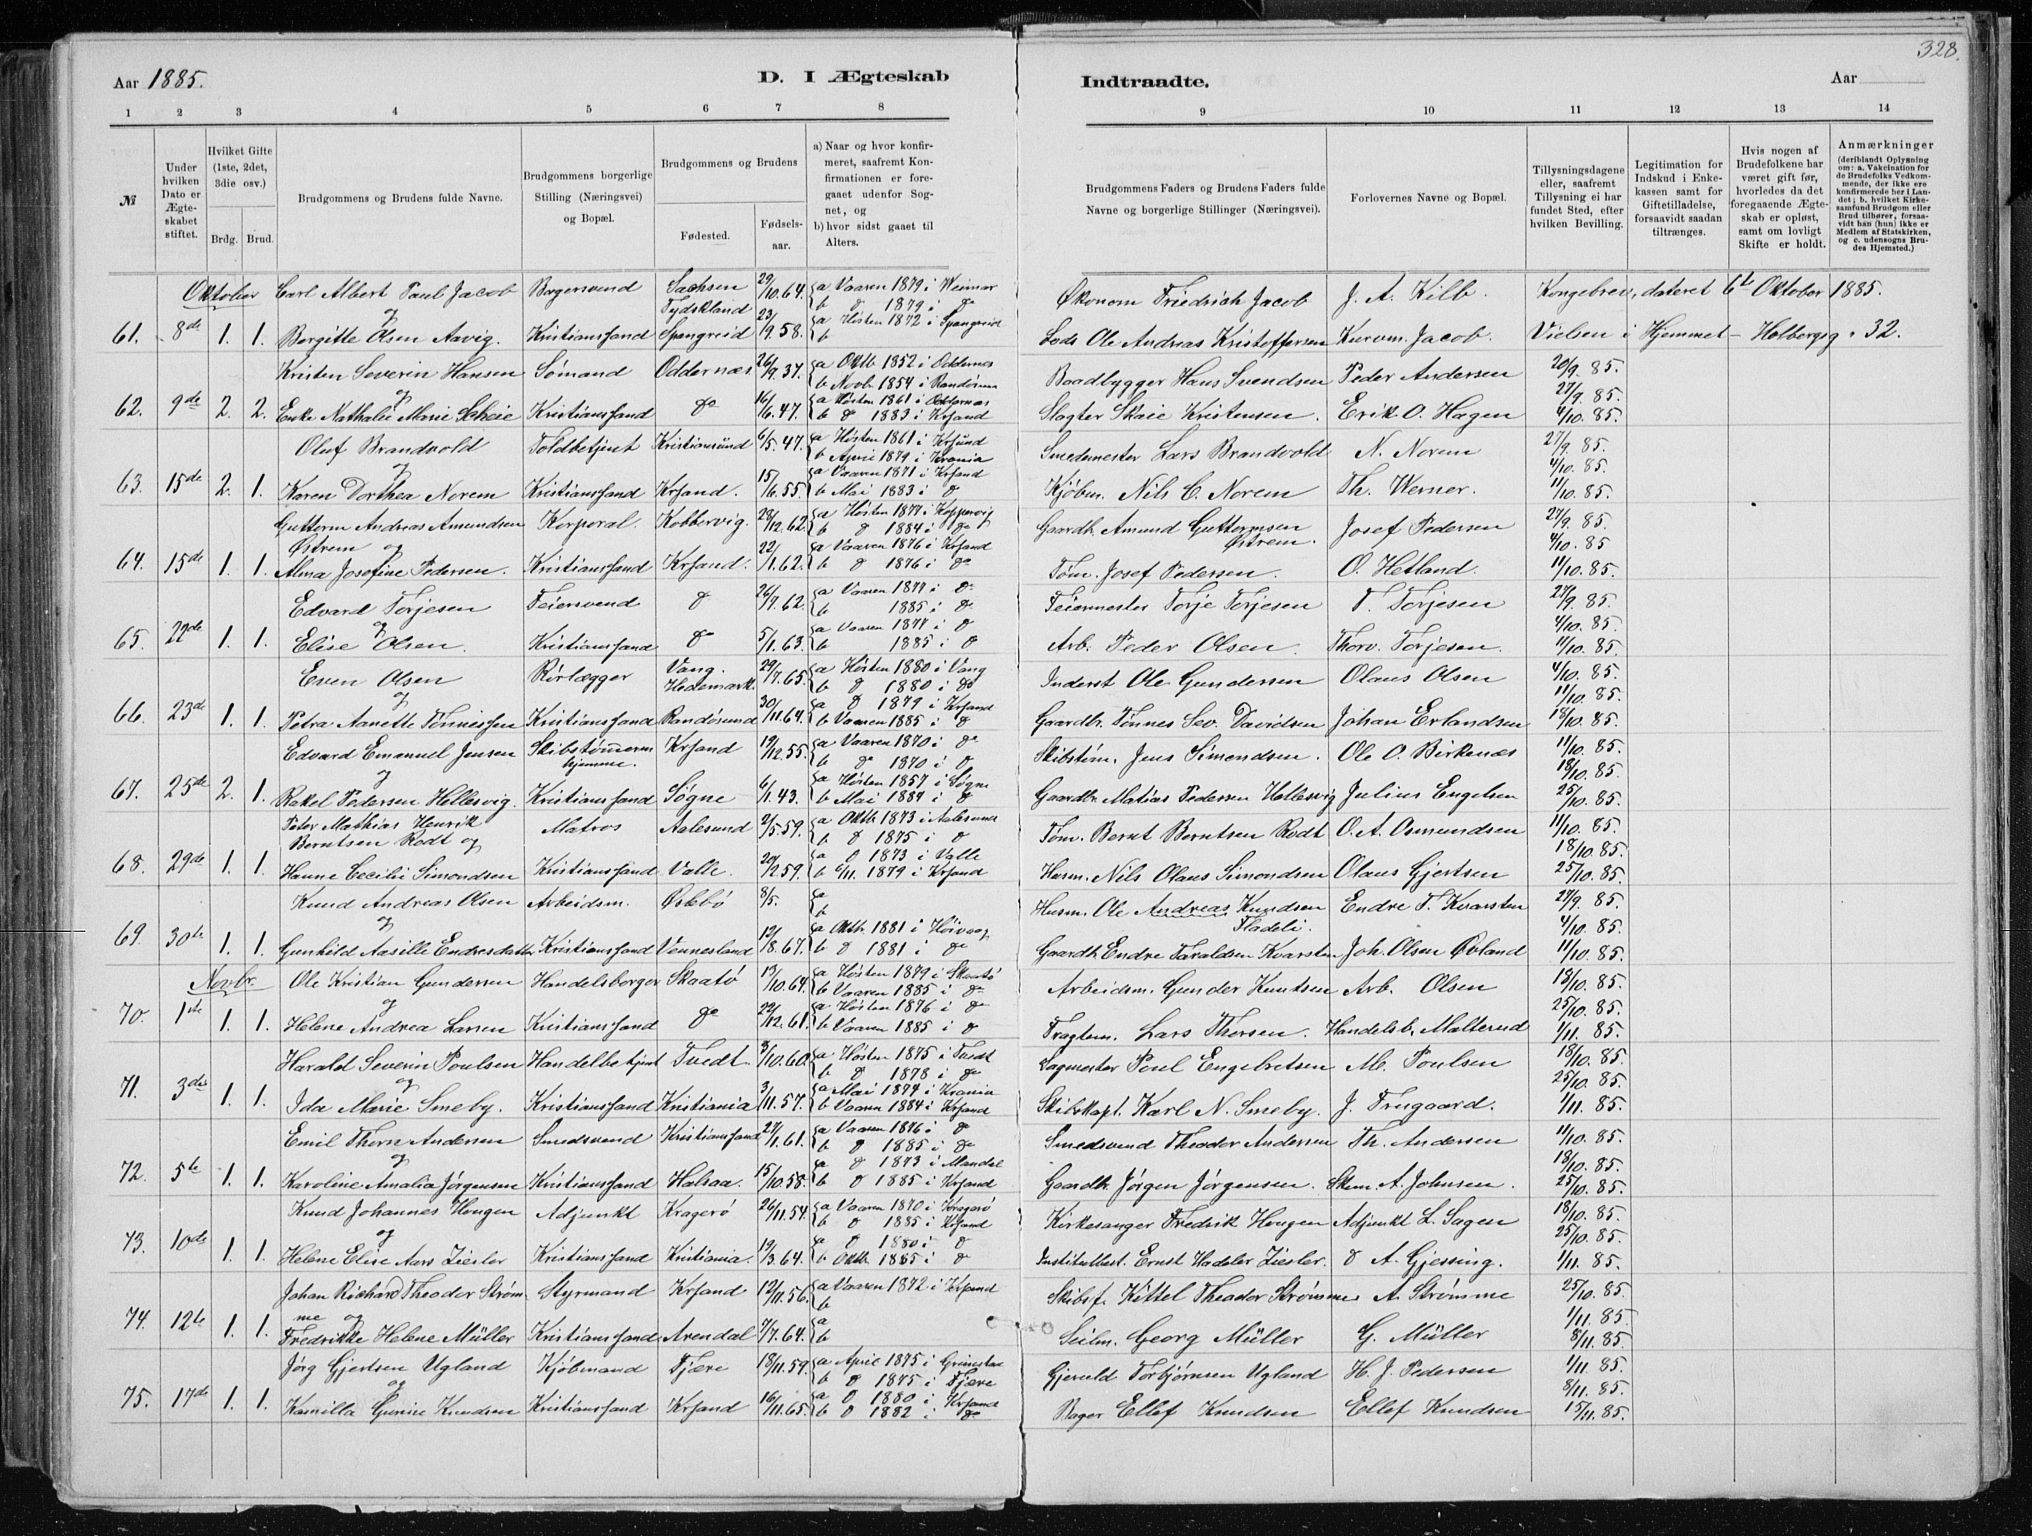 328.
Aar 1885. D. I Ægteskab Indtraadte. Aar
1 2 3 4 5 6 7 8 9 10 11 12 13 14
№
Under hvilken Dato er Ægteskabet stiftet.
Hvilket Gifte (1ste, 2det, 3die osv.)
Brdg. Brud.
Brudgommens og Brudens fulde Navne.
Brudgommens borgerlige Stilling (Næringsvei) og Bopæl.
Brudgommens og Brudens
Fødested. Fødselsaar.
a) Naar og hvor konfirmeret, saafremt Konfirmationen er foregaaet udenfor Sognet, og
b) hvor sidst gaaet til Alters.
Brudgommens Faders og Brudens Faders fulde Navne og borgerlige Stillinger (Næringsvei).
Forlovernes Navne og Bopæl.
Tillysningsdagene eller, saafremt Tillysning ei har fundet Sted, efter hvilken Bevilling.
Legitimation for Indskud i Enkekassen samt for Giftetilladelse, forsaavidt saadan tiltrænges.
Hvis nogen af Brudefolkene har været gift før, hvorledes da det foregaaende Ægteskab er opløst, samt om lovligt Skifte er holdt.
Anmærkninger
(deriblandt Oplysning om: a. Vakcination for de Brudefolks Vedkommende, der ikke ere konfirmerede her i Landet; b. hvilket Kirkesamfund Brudgom eller Brud tilhører, forsaavidt han (hun) ikke er Medlem af Statskirken, og c. udensogns Brudes Hjemsted.)
Oktober Carl Albert Paul Jacob Bagersvend Sachsen Tydskland 29/10.64. a Vaaren 1879 i Weimar b d 1879 i do Økonom Friedrich Jacob J. A. Kilb. Kongebrev, dateret 6te Oktober 1885.
og
61. 8de 1. 1. Bergitte Olsen Aavig. Kristianssand Spangereid 23/9.58. a Høsten 1872 i Spangereid b Lods Ole Andreas Kristoffersen Kurvm. Jacob. Vielsen i Hjemmet – Holbergsg. 32.
Kristen Severin Hansen Sømand Oddernæs 26/9.37. a Oktb 1852 i Oddernes b Novb. 1854 i Randøsund Baadbygger Hans Svendsen Peder Andersen 20/9. 85.
og 27/9. 85.
62. 9de 2. 2. Enke Nathalie Marie Scheie Kristianssand do 16/6.47. a Høsten 1861 i Oddernæs b d 1883 i Krsand Slagter Skaie Kristensen. Erik O. Hagen 4/10. 85.
Oluf Brandvold Toldbetjent Kristiansund 6/5.47. a Høsten 1861 i Krsund b April 1879 i Krania Smedemester Lars Brandvold N. Norem 27/9. 85.
og 4/10. 85.
63. 15de 2. 1. Karen Dorthea Norem Kristianssand Krsand. 15/6.55. a Vaaren 1871 i Krsand b Mai 1883 i d Kjøbm. Nils C. Norem Th. Werner. 11/10. 85.
Guttorm Andreas Amundsen Korporal. Kobbervig. 28/12.62. a Høsten 1877 i Koppervig b d 1884 i do Gaardb. Amund Guttormsen Østrem. Josef Pedersen 27/9. 85.
Østrem og 4/10. 85
64. 15de 1. 1. Alma Josefine Pedersen. Kristianssand Krsand. 22/1.62. a Vaaren 1876 i Krsand b d 1876 i do Tøm. Josef Pedersen. O. Hetland. 11/10. 85.
Edvard Torjesen Feiersvend d 26/7.62. a Vaaren 1879 i do b 1885 i do Feiermester Torje Torjesen T. Torjesen 27/9. 85.
og 4/10. 85.
65. 22de 1. 1. Elise Olsen. Kristianssand do 5/1.63. a Vaaren 1877 i d b 1885 i d Arb. Peder Olsen. Thorv. Torjesen. 11/10. 85.
Even Olsen Rørlægger Vang. Hedemark. 29/7.65. a Høsten 1880 i Vang b d 1880 i do Inderst Ole Gundersen Olaus Olsen 4/10. 85.
og 11/10. 85.
66. 23de 1. 1. Petra Annette Tønnessen Kristianssand Randøsund 30/11.64. a d 1879 i Krsand b Vaaren 1885 i d Gaardb. Tønnes Sev. Davidsen Johan Erlandsen 18/10. 85.
Edvard Emanuel Jensen Skibstømmerm hjemme. Krsand 19/12.55. a Vaaren 1870 i do b do 1870 i d Skibstøm. Jens Simondsen. Ole O. Birkenæs 11/10. 85.
og 18/10. 85.
67. 25de 2. 1. Rakel Pedersen Hellesvig. Kristianssand Søgne 6/1.43. a Høsten 1857 i Søgne b Mai 1884 i d Gaardb. Matias Pedersen Hellesvig Julius Engelsen 25/10. 85.
Peter Mathias Henrik Matros Aalesund 2/5.59. a Oktb 1873 i Aalesund b d 1875 i d Tøm. Bernt Berntsen Rødt O. A. Osmundsen 11/10. 85.
Berntsen Rødt og 18/10. 85.
68. 29de 1. 1. Hanne Cecilie Simondsen Kristianssand Valle. 20/2.59. a d 1873 i Valle b 6/11. 1879 i Krsand Husm. Nils Olaus Simondsen Olaus Gjertsen 25/10. 85.
Knud Andreas Olsen Arbeidsm. Øslebø 8/5. a b Husm. Ole Andreas Knudsen Fladeli. Endre T. Kvarsten 27/9. 85.
og 4/10. 85.
69. 30te 1. 1. Gunhild Aasille Endresdatter Kristianssand Vennesland 12/8.67. a Oktb. 1881 i Høivaag b d 1881 i do Gaardb. Endre Taraldsen Kvarsten Joh. Olsen Øvland 11/10. 85.
Novbr. Ole Kristian Gundersen Handelsborger Skaatø 13/10.64. a Høsten 1879 i Skaatø b Vaaren 1885 i do Arbeidsm. Gunder Knutsen Arb. Olsen 18/10. 85.
og 25/10. 85.
70 1ste 1. 1. Helene Andrea Larsen Kristianssand do 22/12.61. a Høsten 1876 i do b Vaaren 1885 i d Fragtem. Lars Thorsen. Handelsb. Malterud 1/11. 85.
Harald Severin Poulsen Handelbetjent Tvedt. 3/10.60. a Høsten 1875 i Tvedt b d 1878 i do Sagmester Poul Engebretsen M. Poulsen 18/10. 85.
og 25/10. 85.
71. 3die 1. 1. Ida Marie Smeby. Kristianssand Kristiania 3/11.57. a Mai 1874 i Krania b Vaaren 1884 i Krsand Skibskapt. Karl N. Smeby. J. Trugaard. 1/11. 85.
Emil Thorn Andersen Smedsvend Kristianssand 27/1.61. a Vaaren 1876 i do b d 1885 i do Smedsvend Theodor Andersen Th. Andersen 11/10. 85.
og 18/10. 85.
72. 5te 1. 1. Karoline Amalia Jørgensen Kristianssand Halsaa. 15/10.58. a d 1873 i Mandal b d 1885 i Krsand Gaardb. Jørgen Jørgensen. Skom. A. Johnsen. 25/10. 85.
Knud Johannes Hougen Adjunkt Kragerø 26/11.54. a Vaaren 1870 i Kragerø b d 1885 i Krsand Kirkesanger Fredrik Hougen Adjunkt L. Sagen 18/10. 85.
og 25/10. 85.
73. 10de 1. 1. Helene Elise Aars Ziesler Kristianssand Kristiania. 19/3.64. a d 1880 i d b Oktb. 1885 i do Institutbest. Ernst Hadeler Ziesler. d A. Gjessing. 1/11. 85.
Johan Richard Theodor Strøm- Styrmand Krsand 12/11.56. a Vaaren 1872 i Krsand b Skibsf. Kittel Theodor Strømme A. Strømme 25/10. 85.
me og 1/11. 85.
74. 12te 1. 1. Fredrikke Helene Müller Kristianssand Arendal 7/7.64. a b Seilm. Georg Müller G. Müller 8/11. 85.
Jørg Gjertsen Ugland Kjøbmand Fjære 18/11.59. a April 1875 i Grimstad b d 1875 i Fjære Gjeruld Torbjørnsen Ugland H. J. Pedersen 1/11. 85.
og 8/11. 85.
75. 17de 1. 1. Kamilla Gurine Knudsen Kristianssand Krsand 16/11.65. a d 1880 i Krsand b d 1882 i do Bager Ellef Knudsen Ellef Knudsen 15/11. 85.